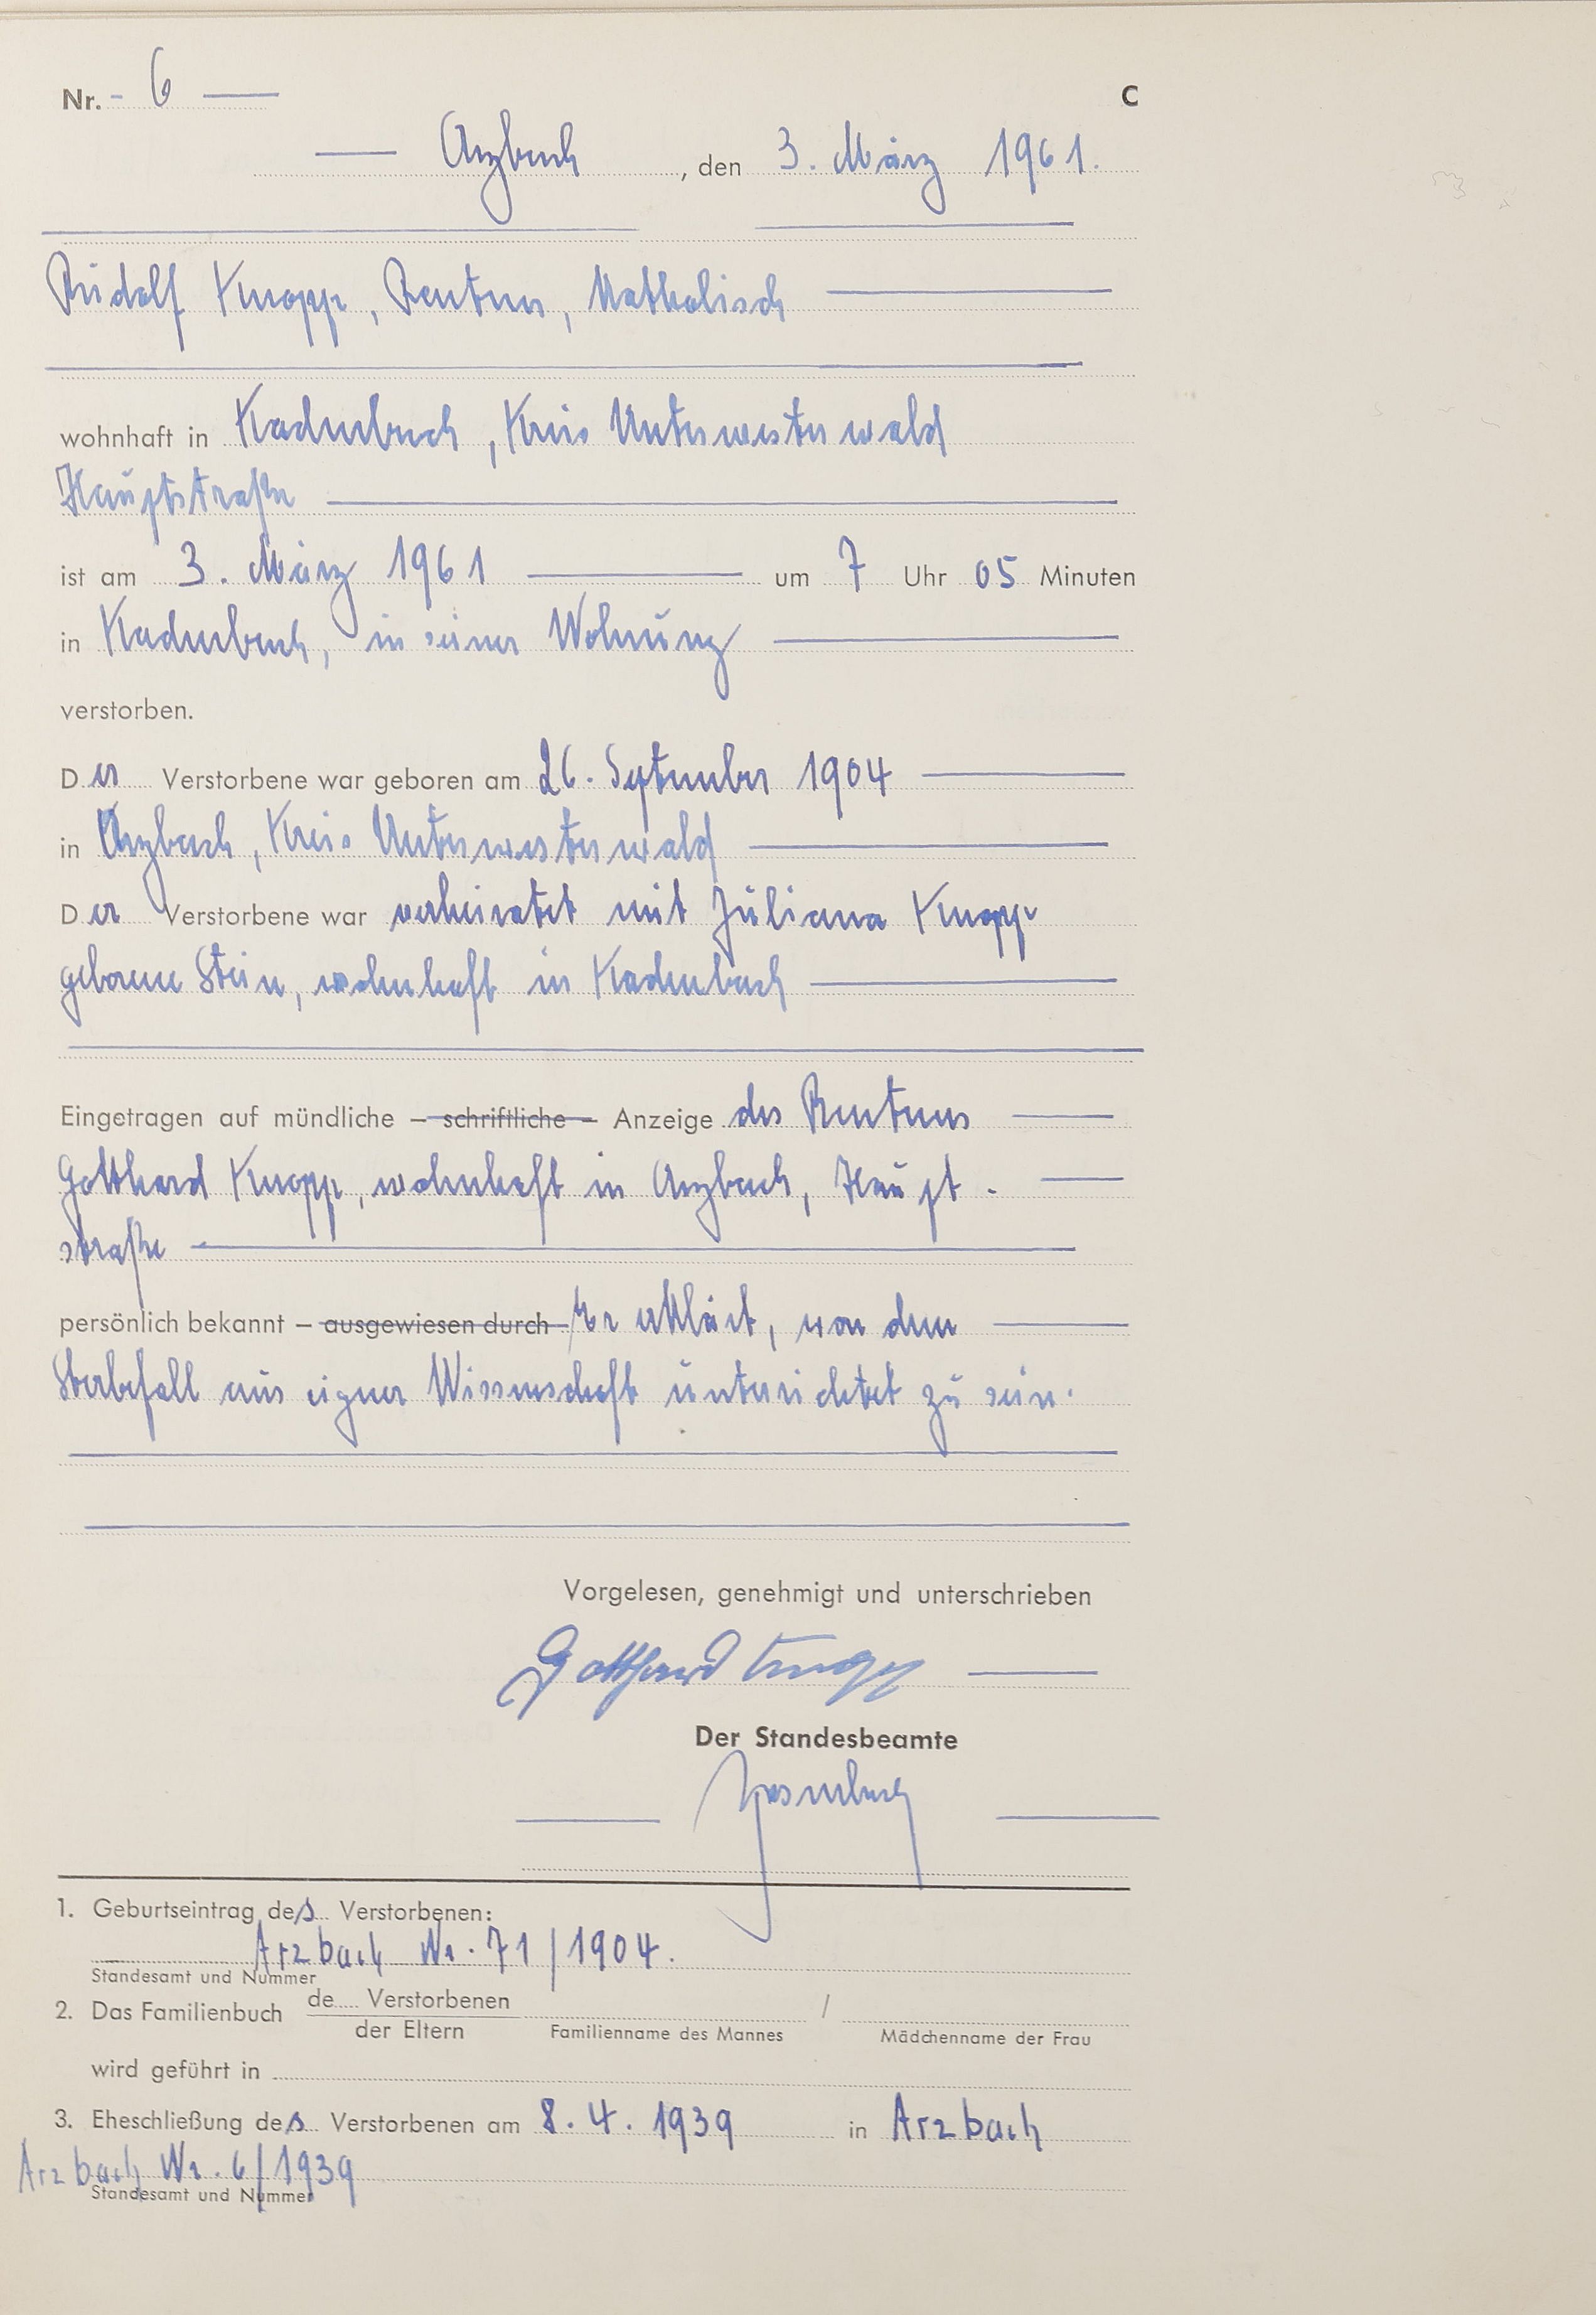 Nr. - 6 — C
— Arzbach, den 3. März 1961.
Rudolf Knopp, Rentner, katholisch —
wohnhaft in Kadenbach, Kreis Unterwesterwald
Hauptstraße —
ist am 3. März 1961 — um 7 Uhr 05 Minuten
in Kadenbach, in seiner Wohnung —
verstorben.
Der Verstorbene war geboren am 26. September 1904 —
in Arzbach, Kreis Unterwesterwald —
Der Verstorbene war verheiratet mit Juliana Knopp
geborene Stein, wohnhaft in Kadenbach —
Eingetragen auf mündliche – schriftliche – Anzeige des Rentners —
Gotthard Knopp, wohnhaft in Arzbach, Haupt- —
straße —
persönlich bekannt – ausgewiesen durch – Er erklärt, von dem —
Sterbefall aus eigner Wissenschaft unterrichtet zu sein.
Vorgelesen, genehmigt und unterschrieben
Gotthard Knopp —
Der Standesbeamte
1. Geburtseintrag des Verstorbenen:
Arzbach Nr. 71/1904.
Standesamt und Nummer
2. Das Familienbuch de Verstorbenen /
der Eltern Familienname des Mannes Mädchenname der Frau
wird geführt in
3. Eheschließung des Verstorbenen am 8. 4. 1939 in Arzbach
Arzbach Nr. 6/1939
Standesamt und Nummer